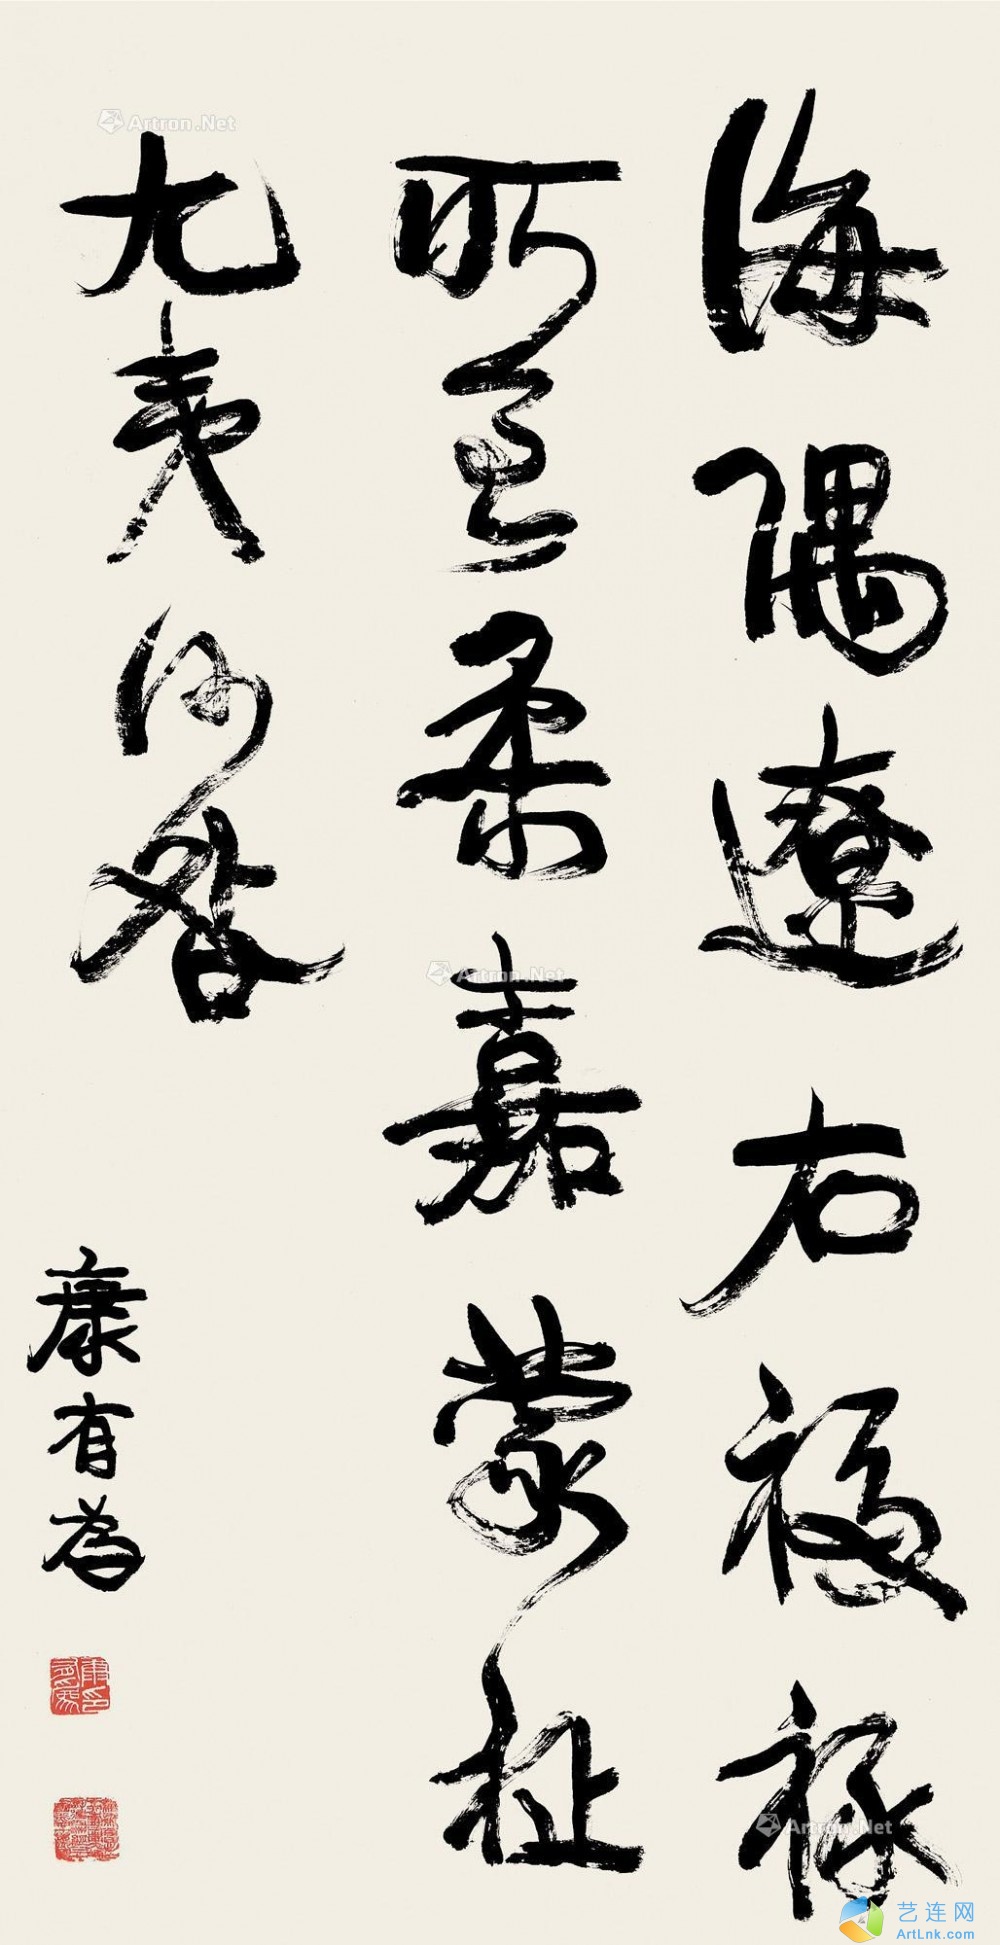 海隅遼右福祿
所至柔嘉蒙祉
九夷何咎
康有為
康有為印
Artron.Net
Artron.Net
Artron.Net
艺连网
ArtLnk.com